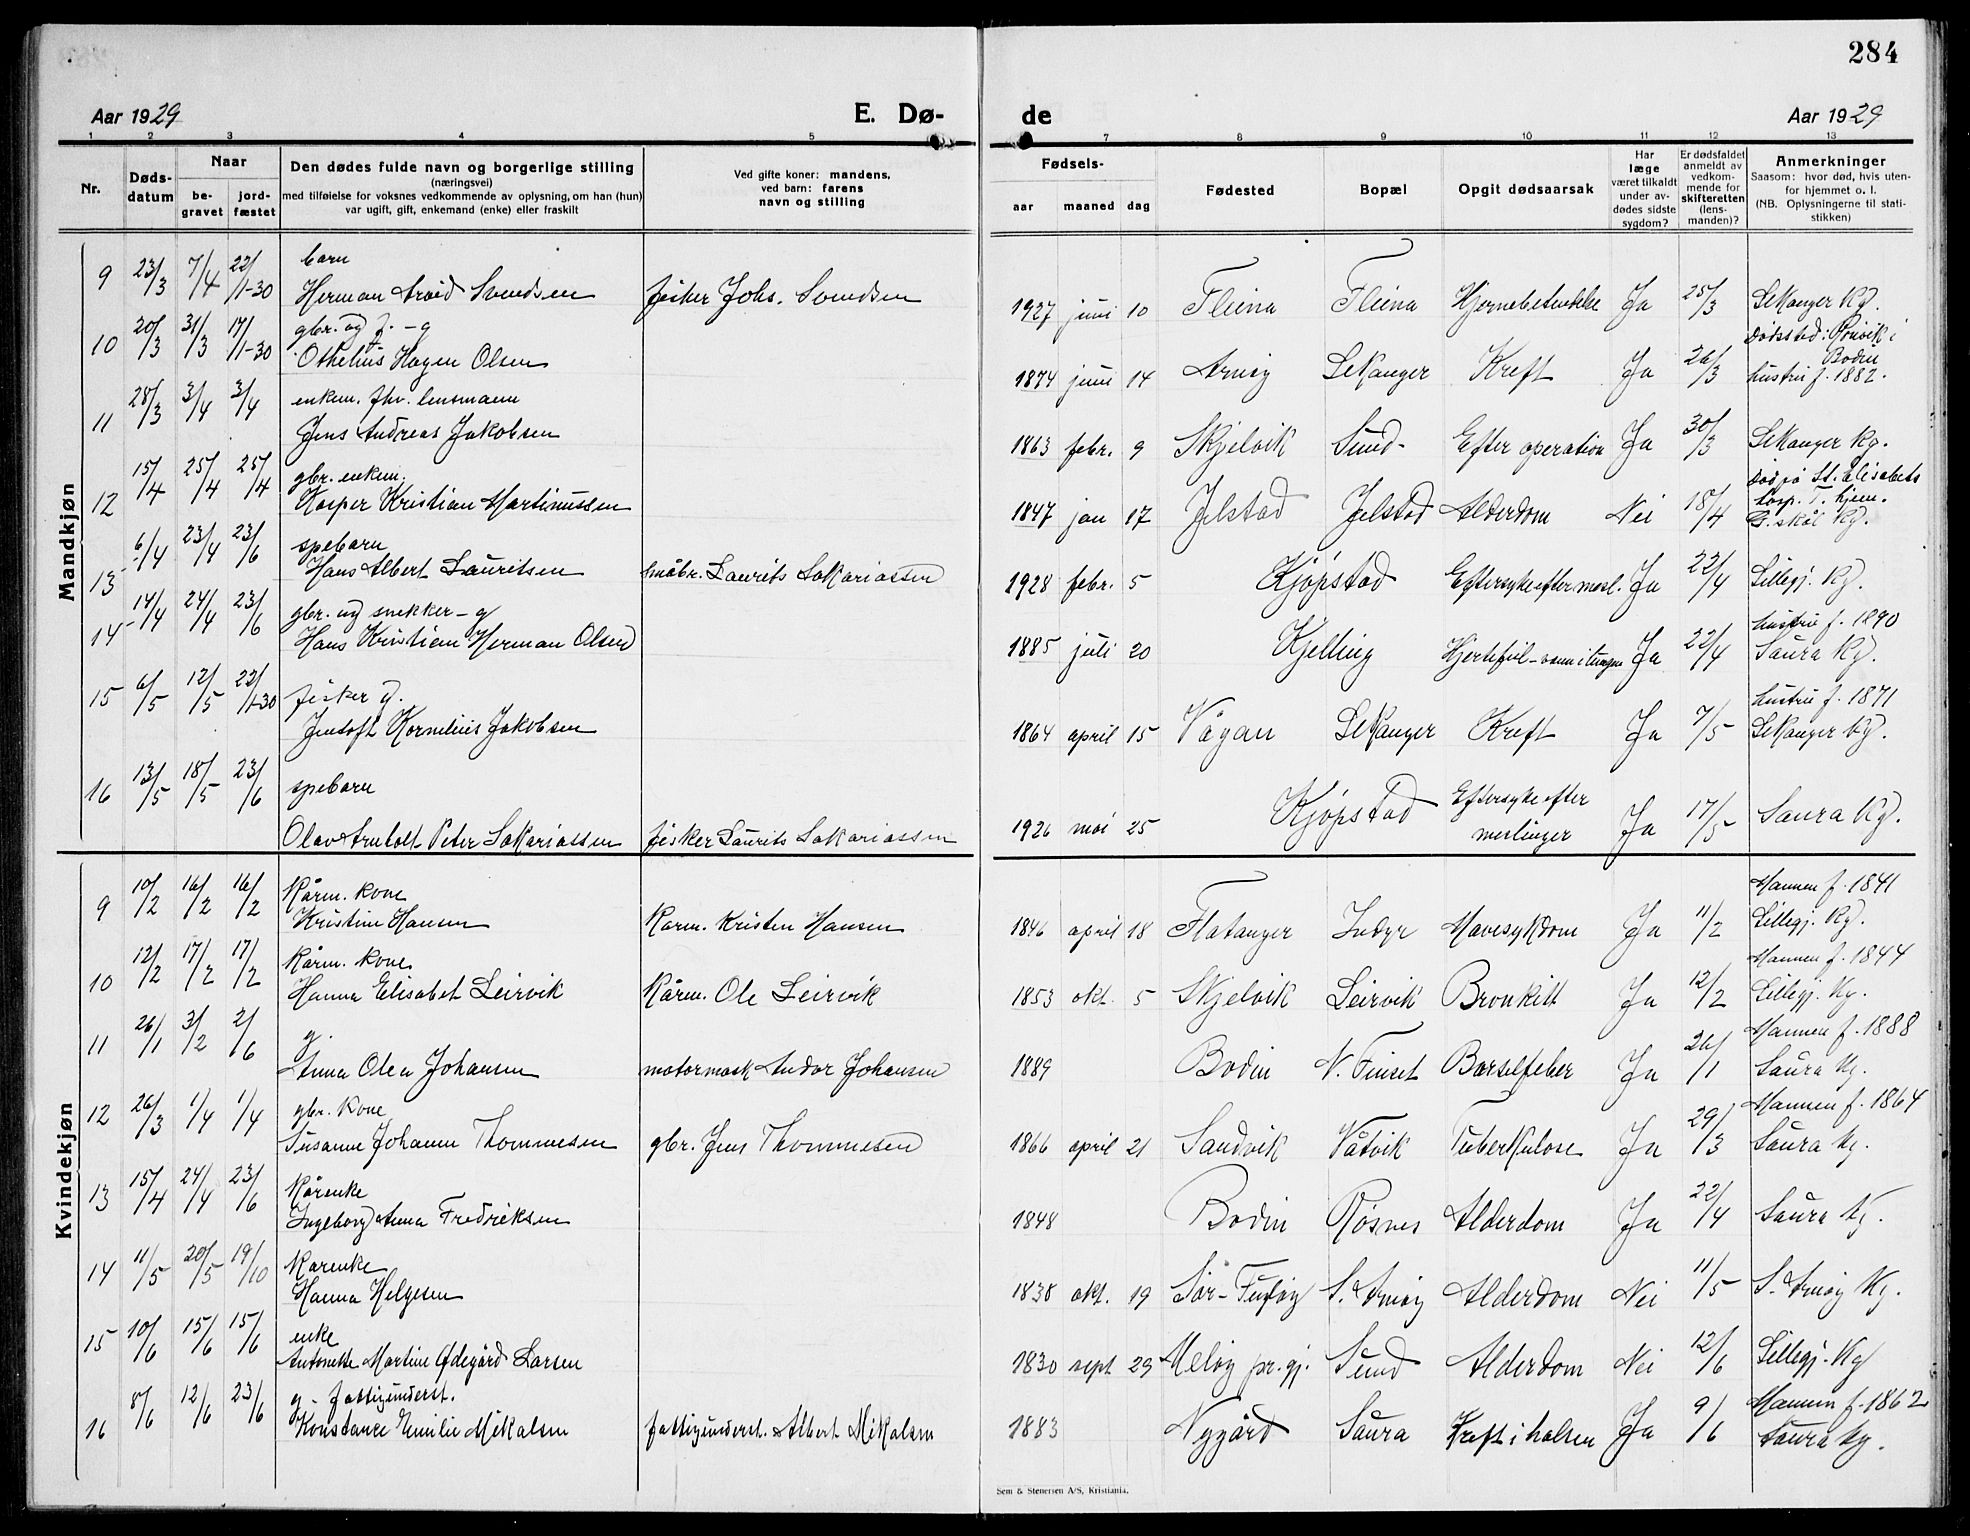 284
Aar 1929 E. Dø-
de Aar 1929
1 2 3 4 5 7 8 9 10 11 12 13
Nr.
Døds-
datum
Naar
be-
gravet
jord-
fæstet
Den dødes fulde navn og borgerlige stilling
(næringsvei)
med tilføielse for voksnes vedkommende av oplysning, om han (hun)
var ugift, gift, enkemand (enke) eller fraskilt
Ved gifte koner: mandens,
ved barn: farens
navn og stilling
Fødsels-
aar maaned dag
Fødested
Bopæl
Opgit dødsaarsak
Har
læge
været tilkaldt
under av-
dødes sidste
sygdom?
Er dødsfaldet
anmeldt av
vedkom-
mende for
skifteretten
(lens-
manden)?
Anmerkninger
Saasom: hvor død, hvis uten-
for hjemmet o. l.
(NB. Oplysningerne til stati-
stikken)
Mandkjøn
barn
9 23/3 7/4 22/1-30 Herman Arvid Svendsen fisker Johs. Svendsen 1927 juni 10 Fleina Fleina Hjernebetendelse Ja 25/3 Lekanger Kg.
gbr. og f. - g Dødssted: Rønvik i
Bodin
10 20/3 31/3 17/1-30 Othelius Hagen Olsen 1874 juni 14 Arnøy Lekanger Kreft Ja 26/3 hustru f. 1882.
enkem. fhv. lensmann
11 28/3 3/4 3/4 Jens Andreas Jakobsen 1863 febr. 9 Skjelvik Sund Efter operation Ja 30/3 Lekanger Kg.
død på St. Elisabets
gbr. enkem. hosp. T. hjem.
12 15/4 25/4 25/4 Kasper Kristian Martinussen 1847 jan 17 Jelstad Jelstad Alderdom Nei 18/4 G.skål Kg.
spebarn
13 6/4 23/4 23/6 Hans Albert Lauritsen småbr. Laurits Sakariassen 1928 febr. 5 Kjøpstad Eftersyke efter mesl. Ja 22/4 Lillegj. Kg.
gbr. og snekker - g hustru f. 1890
14 14/4 24/4 23/6 Hans Kristian Herman Olsen 1885 juli 20 Kjelling Hjertefeil - vann i lungen Ja 22/4 Saura Kg.
fisker g. hustru f. 1871
15 6/5 12/5 22/1-30 Jentoft Kornelius Jakobsen 1864 april 15 Vågan Lekanger Kreft Ja 7/5 Lekanger Kg.
spebarn Eftersyke efter
16 13/5 18/5 23/6 Olav Arntolt Peter Sakariassen fisker Laurits Sakariassen 1926 mai 25 Kjøpstad meslinger Ja 17/5 Saura Kg.
Kvindekjøn
Kårm. kone Mannen f. 1841
9 10/2 16/2 16/2 Kristine Hansen Karm. Kristen Hansen 1846 april 18 Flatanger Indyr Mavesykdom Ja 11/2 Lillegj. Kg.
Kårm. kone Mannen f. 1844
10 12/2 17/2 17/2 Hanna Elisabet Leirvik Kårm. Ole Leirvik 1853 okt. 5 Skjelvik Leirvik Bronkitt Ja 12/2 Lillegj. Kg.
g. Mannen f. 1888
11 26/1 3/2 2/6 Anna Olea Johansen motormask Andor Johansen 1889 Bodin N. Finset Barselfeber Ja 26/1 Saura Kg.
gbr. kone Mannen f. 1864
12 26/3 1/4 1/4 Susanne Johanne Thommesen gbr. Jens Thommesen 1866 april 21 Sandvik Våtvik Tuberkulose Ja 29/3 Saura Kg.
Kårenke
13 15/4 24/4 23/6 Ingeborg Anna Fredriksen 1848 Bodin Røsnes Alderdom Ja 22/4 Saura Kg.
Karenke
14 11/5 20/5 19/10 Hanna Helgesen 1838 okt. 19 Sør-Fugløy S. Arnøy Alderdom Nei 11/5 S. Arnøy Kg.
enke
15 10/6 15/6 15/6 Antonette Martine Ødegård Larsen 1830 sept 29 Meløy pr.gj. Sund Alderdom Nei 12/6 Lillegj. Kg
g - fattigunderst. Mannen f. 1862
16 8/6 12/6 23/6 Konstance Emilie Mikalsen fattigunderst. Albert Mikalsen 1883 Nygård Saura Kreft i halsen Ja 9/6 Saura Kg.
Sem & Stenersen A/S, Kristiania.